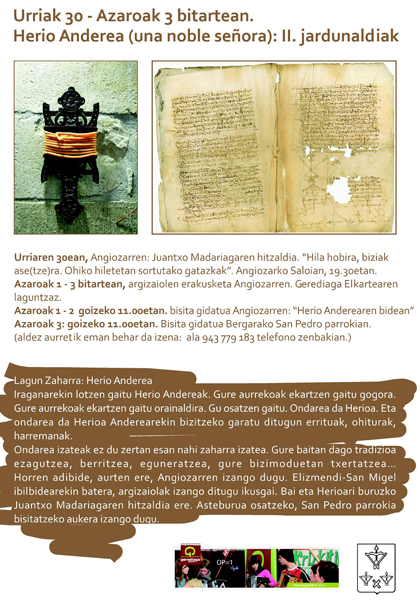 Urriak 30 - Azaroak 3 bitartean.
Herio Anderea (una noble señora): II. jardunaldiak
Urriaren 30ean, Angiozarren: Juantxo Madariagaren hitzaldia. “Hila hobira, biziak
ase(tze)ra. Ohiko hiletetan sortutako gatazkak”. Angiozarko Saloian, 19.30etan.
Azaroak 1 - 3 bitartean, argizaiolen erakusketa Angiozarren. Gerediaga Elkartearen
laguntzaz.
Azaroak 1 - 2 goizeko 11.00etan. bisita gidatua Angiozarren: “Herio Anderearen bidean”
Azaroak 3: goizeko 11.00etan. Bisita gidatua Bergarako San Pedro parrokian.
(aldez aurretik eman behar da izena: ala 943 779 183 telefono zenbakian.)
Lagun Zaharra: Herio Anderea
Iraganarekin lotzen gaitu Herio Andereak. Gure aurrekoak ekartzen gaitu gogora.
Gure aurrekoak ekartzen gaitu orainaldira. Gu osatzen gaitu. Ondarea da Herioa. Eta
ondarea da Herioa Anderearekin bizitzeko garatu ditugun errituak, ohiturak,
harremanak.
Ondarea izateak ez du zertan esan nahi zaharra izatea. Gure baitan dago tradizioa
ezagutzea, berritzea, eguneratzea, gure bizimoduetan txertatzea...
Horren adibide, aurten ere, Angiozarren izango dugu. Elizmendi-San Migel
ibilbidearekin batera, argizaiolak izango ditugu ikusgai. Bai eta Herioari buruzko
Juantxo Madariagaren hitzaldia ere. Asteburua osatzeko, San Pedro parrokia
bisitatzeko aukera izango dugu.
OP=1